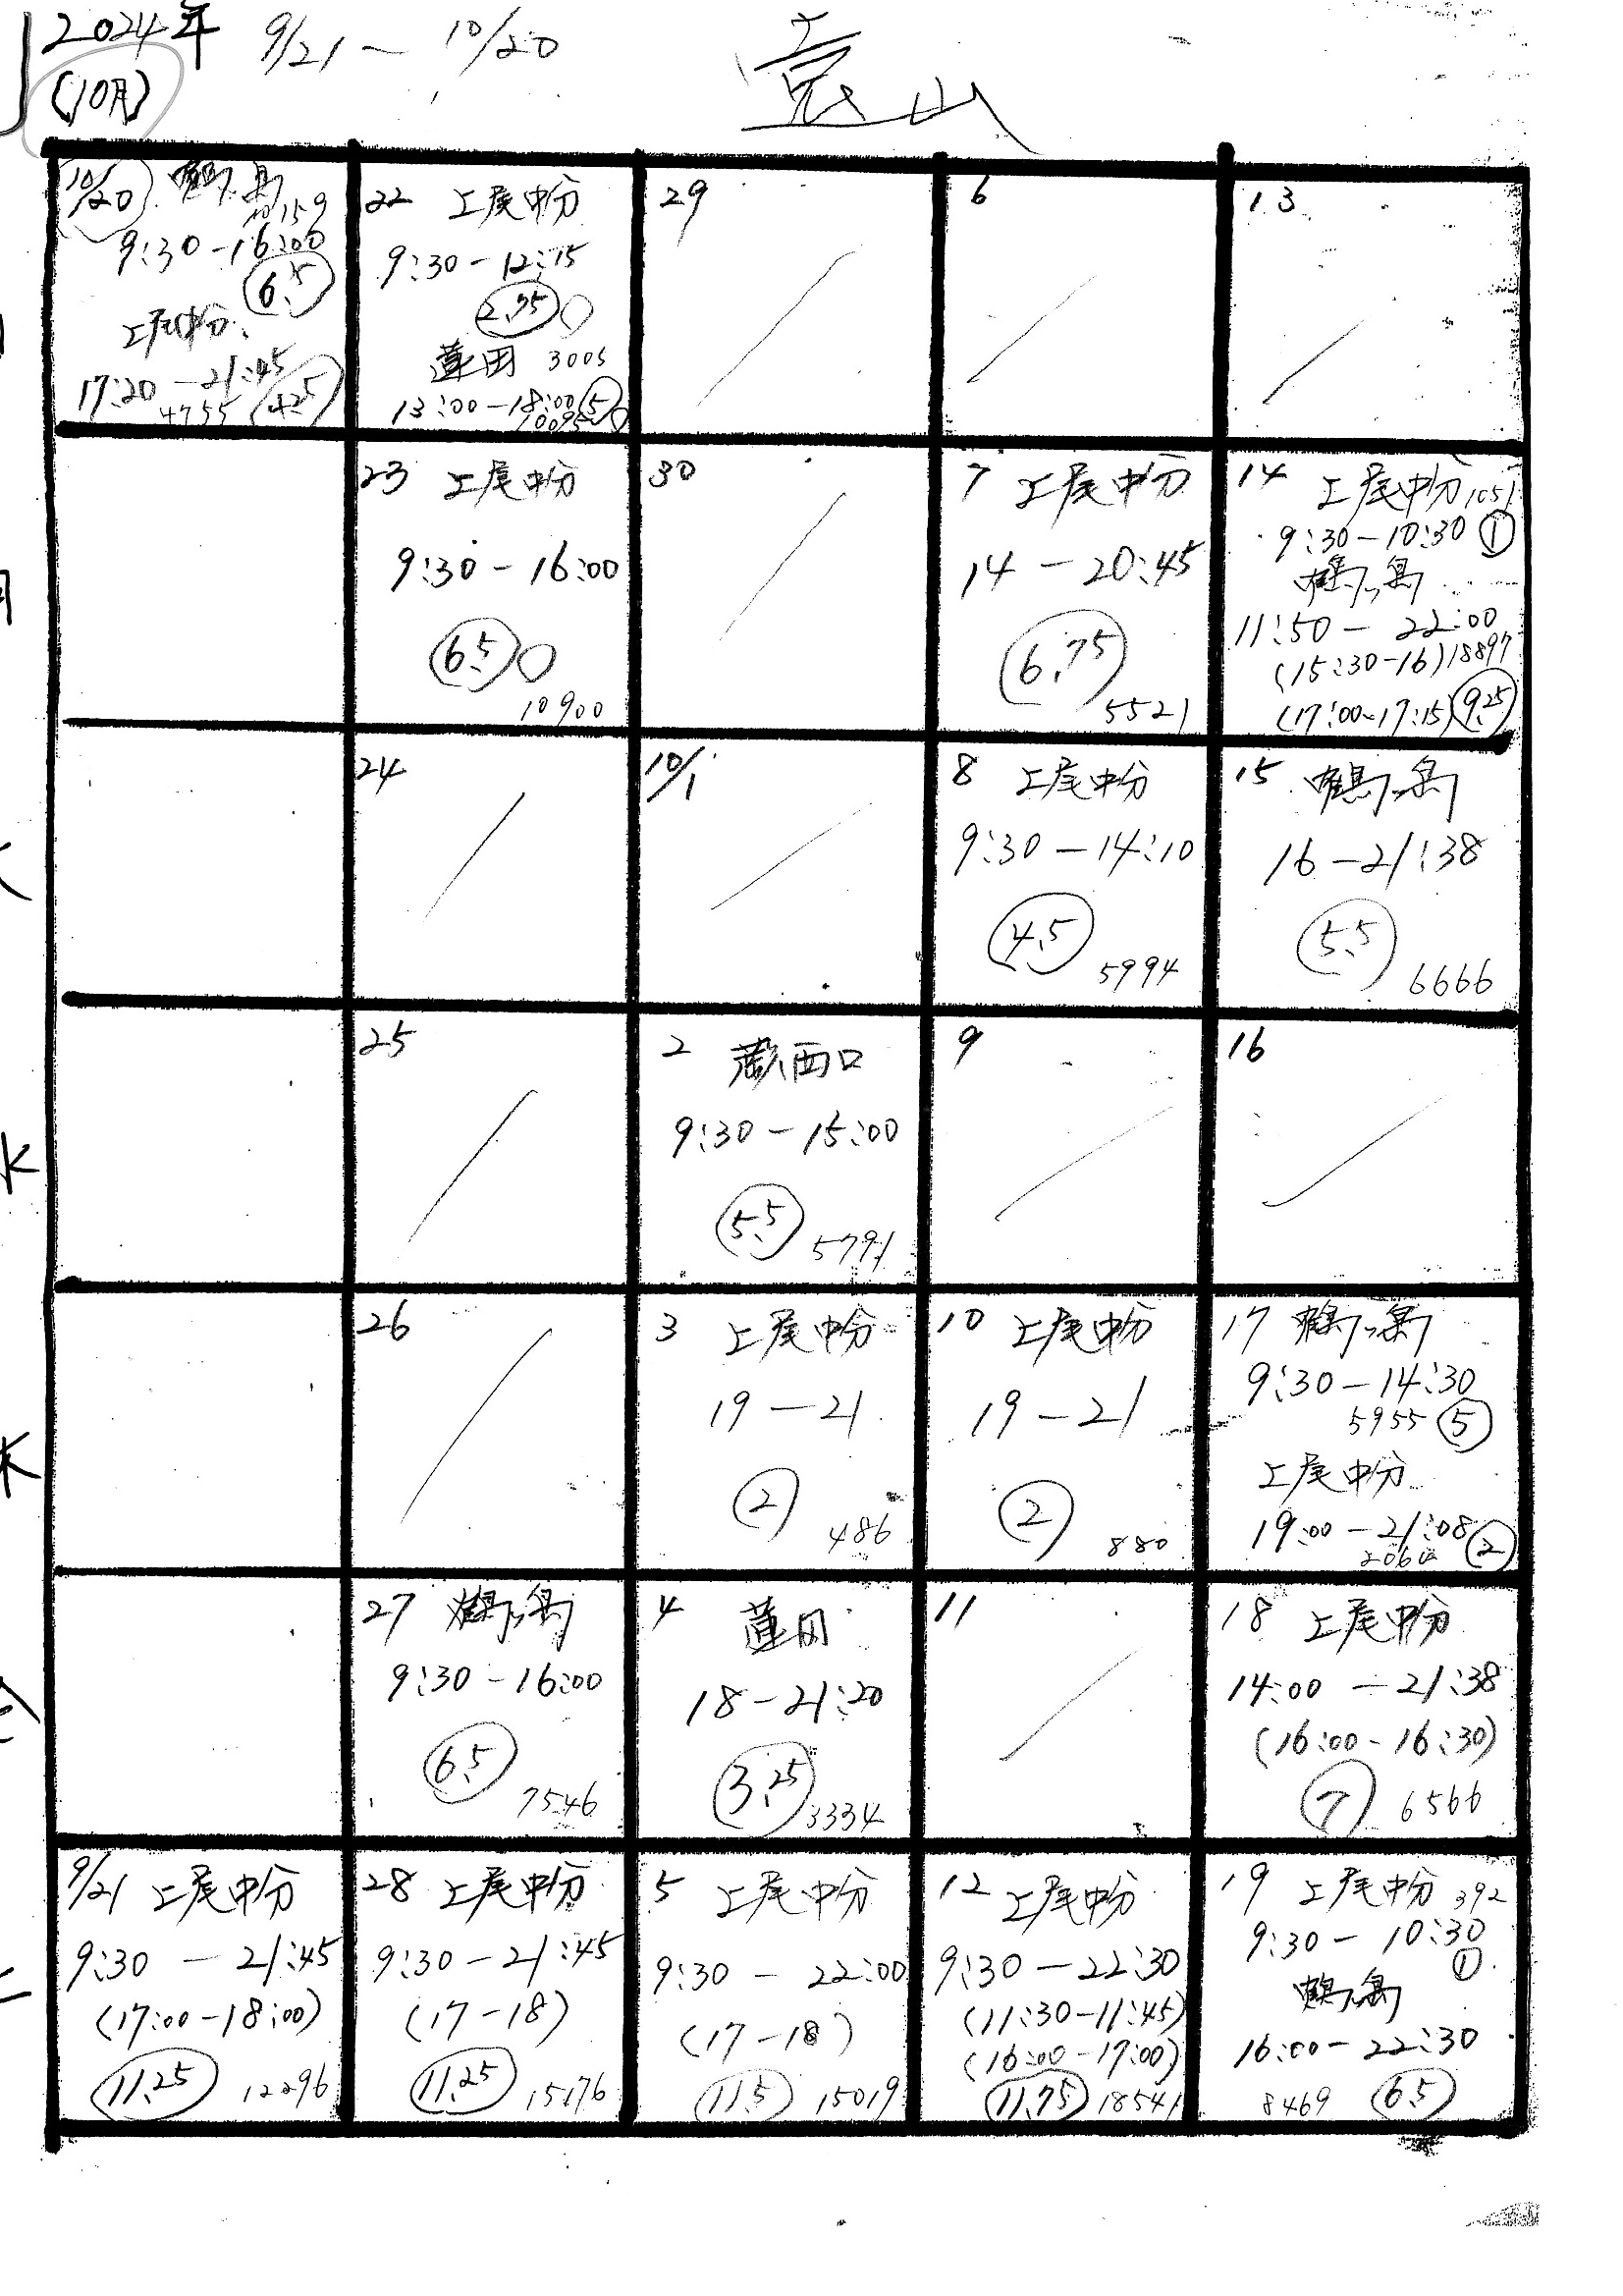 2024年 9/21 ~ 10/20
(10月)
10/20
10159
9:30-16:00
6.5
上尾中分
17:20-21:45
4755 4.25
22 上尾中分
9:30-12:15
2.75
蓮田 3005
13:00-18:00 5
29
6
13
23 上尾中分
9:30-16:00
6.5
10900
30
7 上尾中分
14-20:45
6.75
5521
14 上尾中分 1051
9:30-10:30 ①
鶴ヶ島
11:50-22:00
(15:30-16) 18897
(17:00~17:15) 9.25
24
10/1
8 上尾中分
9:30-14:10
4.5
5994
15 鶴ヶ島
16-21:38
5.5
6666
25
2 蕨西口
9:30-15:00
5.5 5791
9
16
26
3 上尾中分
19-21
②
486
10 上尾中分
19-21
②
880
17 鶴ヶ島
9:30-14:30
5955 ⑤
上尾中分
19:00-21:08 ②
27 鶴ヶ島
9:30-16:00
6.5
7546
4 蓮田
18-21:20
3.25 3334
11
18 上尾中分
14:00-21:38
(16:00-16:30)
⑦ 6566
9/21 上尾中分
9:30-21:45
(17:00-18:00)
11.25 12296
28 上尾中分
9:30-21:45
(17-18)
11.25 15176
5 上尾中分
9:30-22:00
(17-18)
11.5 15019
12 上尾中分
9:30-22:30
(11:30-11:45)
(16:00-17:00)
11.75 18541
19 上尾中分 392
9:30-10:30
①
鶴ヶ島
16:00-22:30
8469 6.5